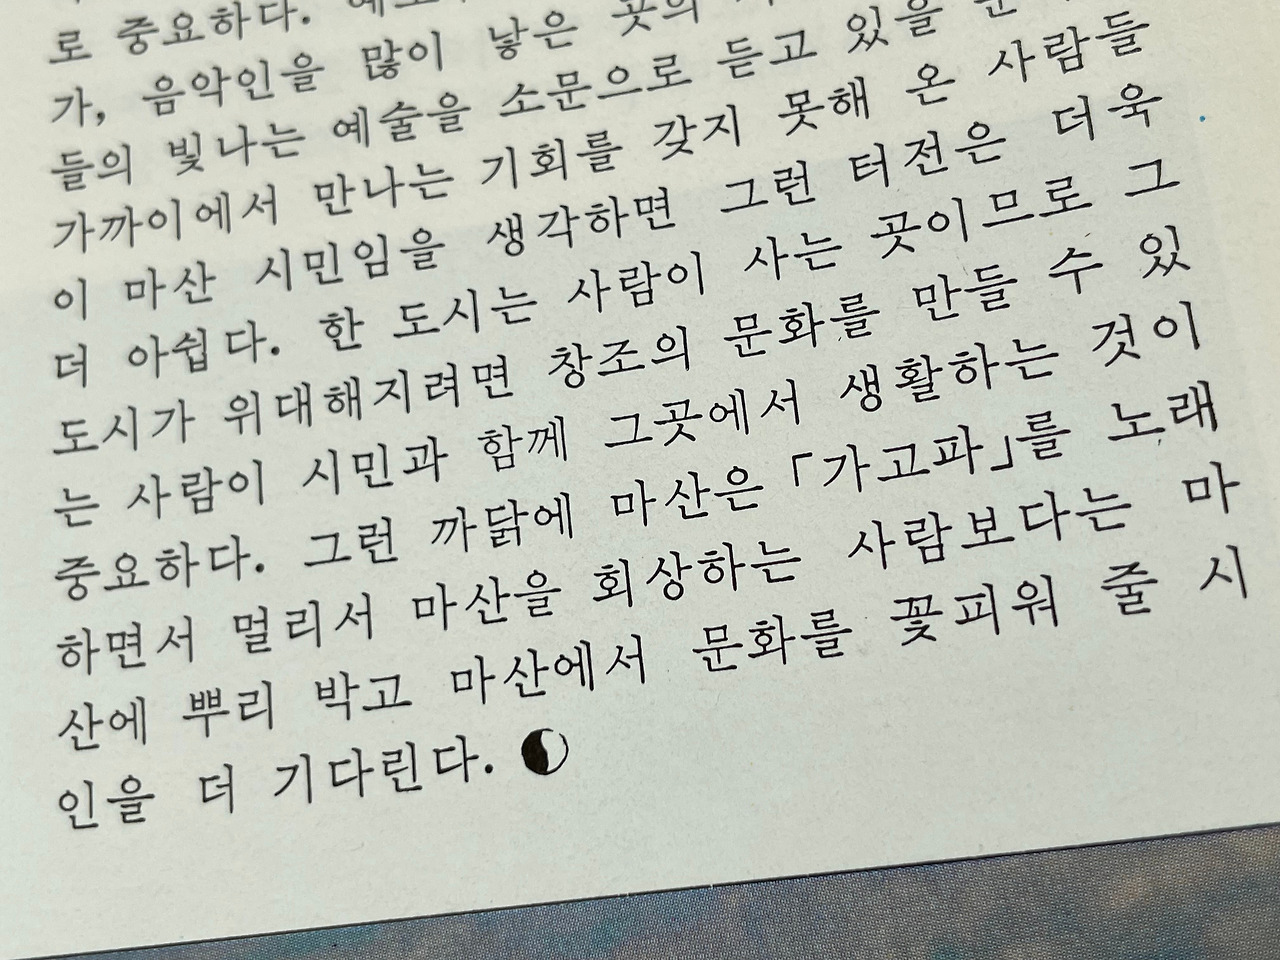 로 중요하다.
가, 음악인을 많이 낳은 곳의
들의 빛나는 예술을 소문으로 듣고 있을
가까이에서 만나는 기회를 갖지 못해 온 사람들
이 마산 시민임을 생각하면 그런 터전은 더욱
더 아쉽다. 한 도시는 사람이 사는 곳이므로 그
도시가 위대해지려면 창조의 문화를 만들 수 있
는 사람이 시민과 함께 그곳에서 생활하는 것이
중요하다. 그런 까닭에 마산은 「가고파」를 노래
하면서 멀리서 마산을 회상하는 사람보다는 마
산에 뿌리 박고 마산에서 문화를 꽃피워 줄 시
인을 더 기다린다.